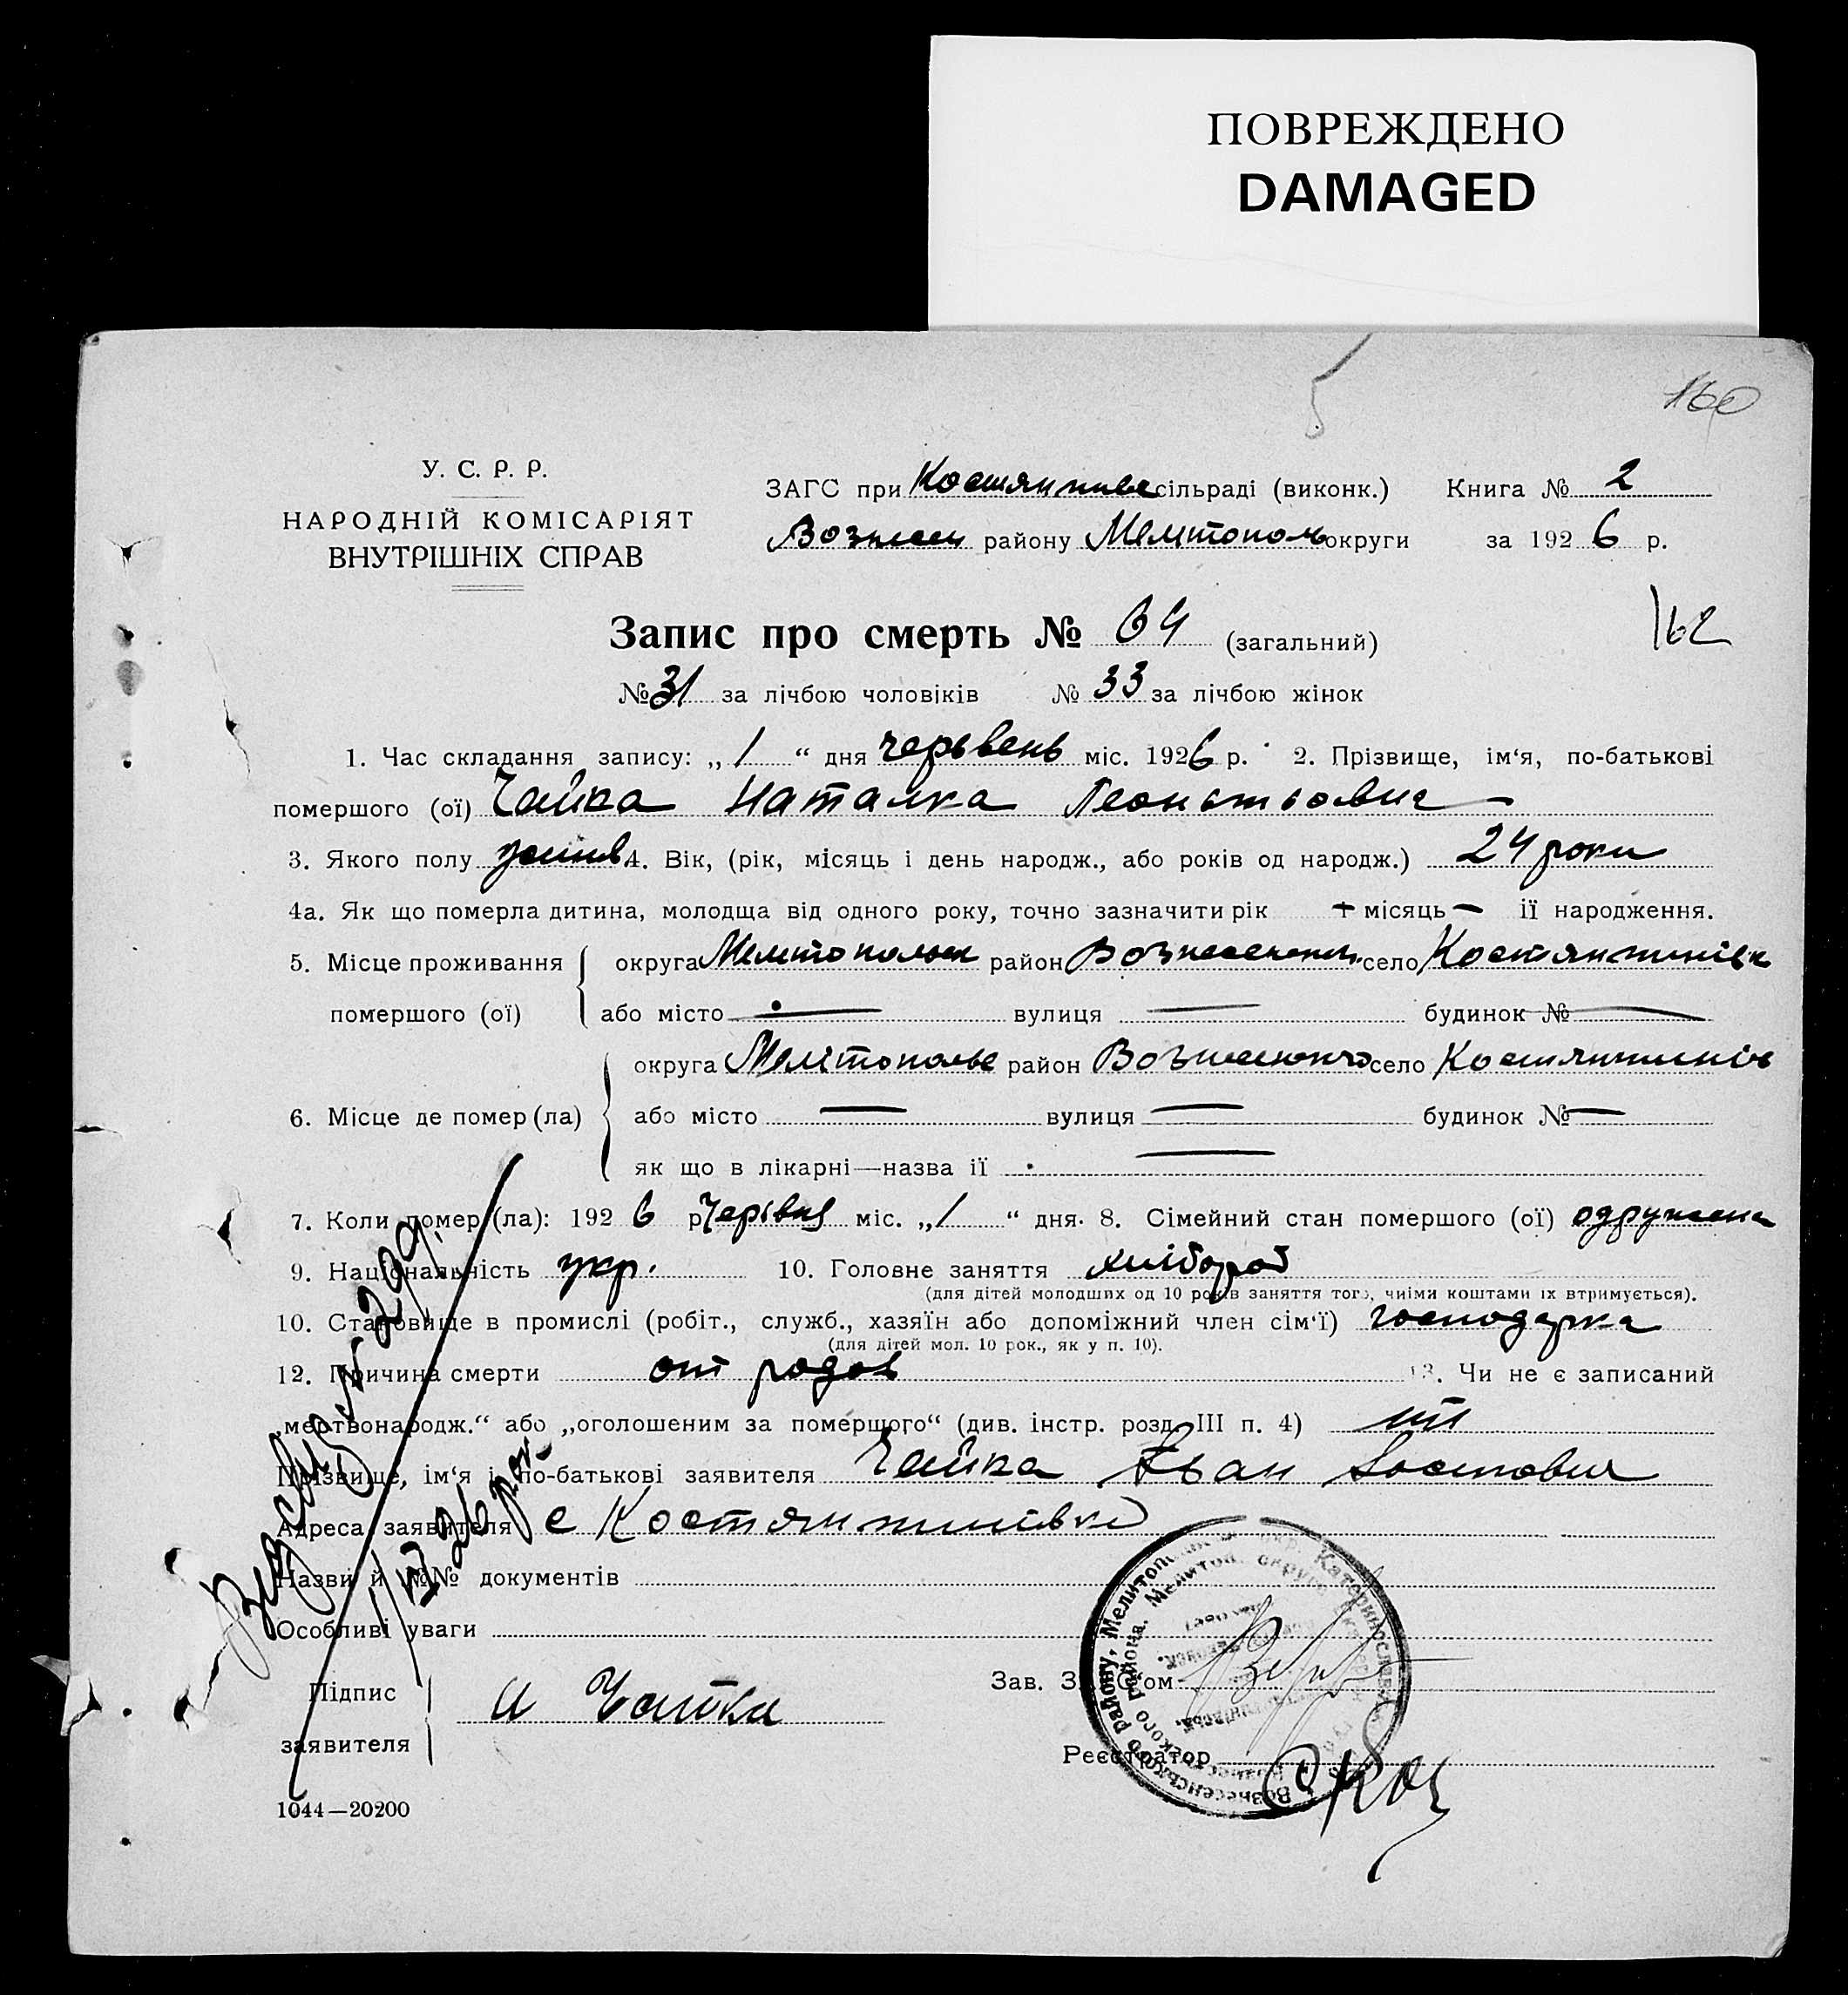 ПОВРЕЖДЕНО
DAMAGED
160
У. С. Р. Р.
НАРОДНІЙ КОМІСАРІЯТ
ВНУТРІШНІХ СПРАВ
ЗАГС при Костянтинв сільраді (виконк.) Книга № 2
Вознесен району Мелитополь округи за 1926 р.
162
Запис про смерть № 64 (загальний)
№ 31 за лічбою чоловіків № 33 за лічбою жінок
1. Час складання запису: „1“ дня червень міс. 1926 р. 2. Прізвище, ім‘я, по-батькові
помершого (ої) Чайка Наталка
3. Якого полу 4. Вік, (рік, місяць і день народж., або років од народж.) 24 роки
4а. Як що померла дитина, молодща від одного року, точно зазначити рік + місяць — її народження.
5. Місце проживання помершого (ої) округа Мелитопольск район село Костянтинівк
або місто — вулиця — будинок № —
6. Місце де помер (ла) округа Мелітопольс район село Костянтинів
або місто — вулиця — будинок № —
як що в лікарні—назва її —
7. Коли помер (ла): 1926 р міс. „1“ дня. 8. Сімейний стан помершого (ої) одружена
9. Національність укр. 10. Головне заняття хлібороб
(для дітей молодших од 10 років заняття того, чиіми коштами іх втримується).
10. Становище в промислі (робіт., служб., хазяїн або допоміжний член сім‘ї) господарка
(для дітей мол. 10 рок., як у п. 10).
12. Причина смерти от родов 13. Чи не є записаний
„мертвонародж.“ або „оголошеним за померщого“ (див. інстр. розд. III п. 4) ні
Прізвище, ім‘я і по-батькові заявителя Чайка Іван
Адреса заявителя с Костянтинівка
Назви й №№ документів
Особливі уваги
Підпис заявителя И Чайка
Зав. ЗАГС‘ом
Реєстратор
1044—20200